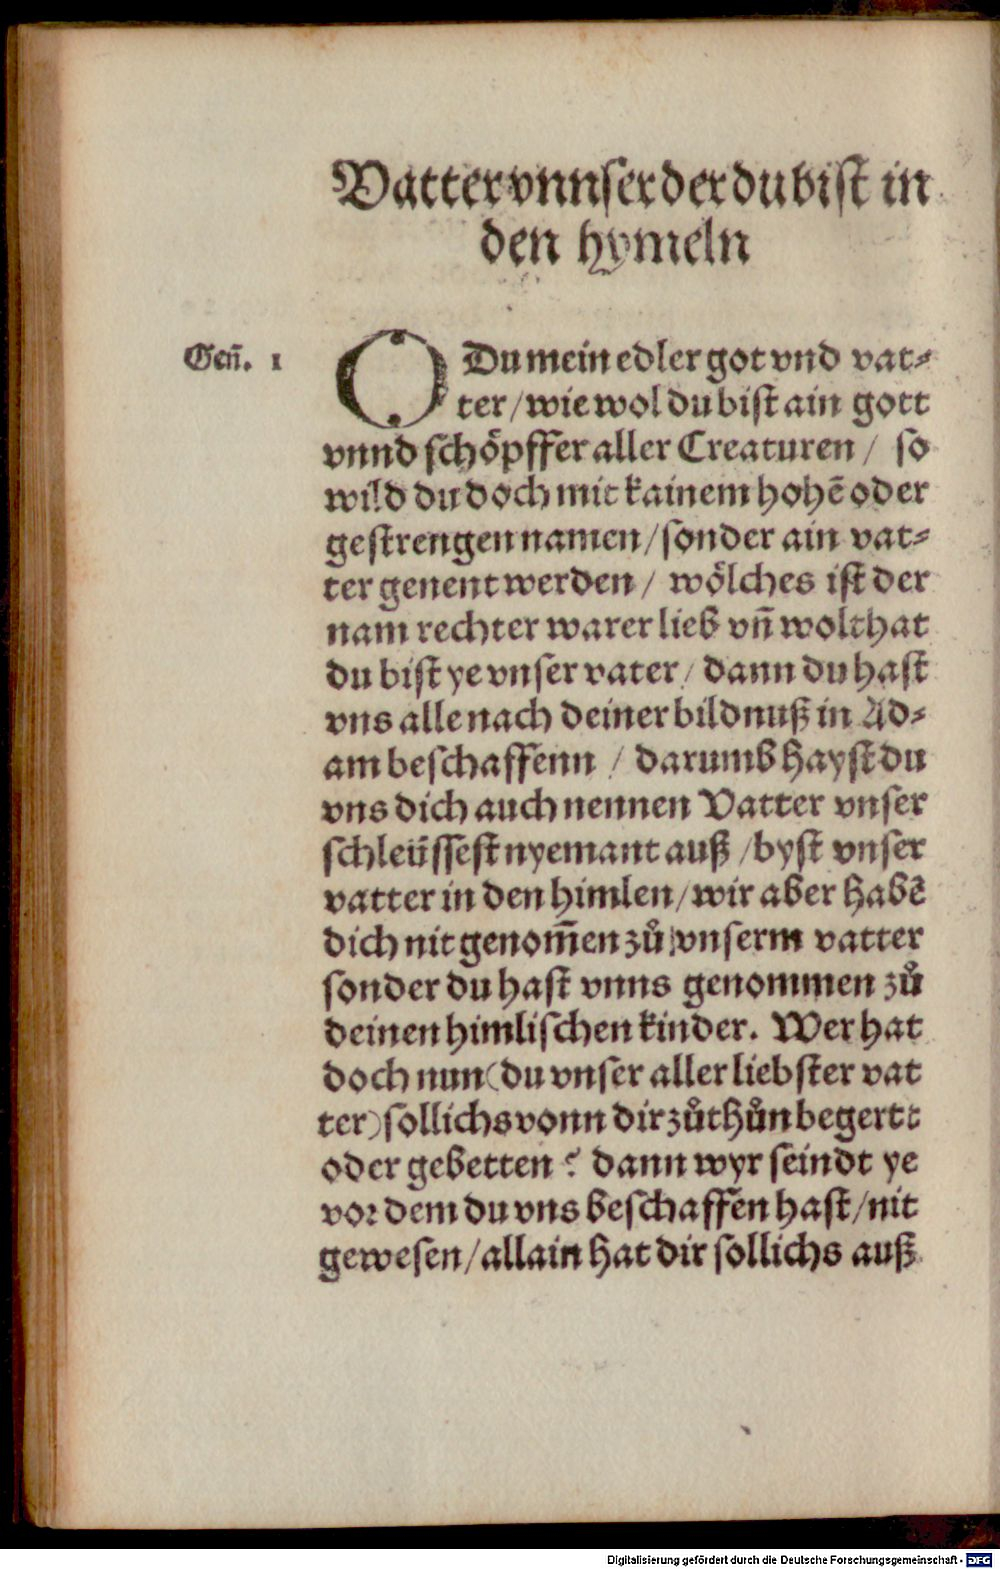 Vatter vnnser der du bist in
den hymeln
Geñ. 1
O Du mein edler got vnd vat⸗
ter / wie wol du bist ain gott
vnnd schöpffer aller Creaturen / so
wild du doch mit kainem hohē oder
gestrengen namen / sonder ain vat⸗
ter genent werden / wölches ist der
nam rechter warer lieb vñ wolthat
du bist ye vnser vater / dann du hast
vns alle nach deiner bildnuß in Ad⸗
am beschaffenn / darumb hayst du
vns dich auch nennen Vatter vnser
schleüssest nyemant auß / byst vnser
vatter in den himlen / wir aber habē
dich nit genom̄en zů vnserm vatter
sonder du hast vnns genommen zů
deinen himlischen kinder. Wer hat
doch nun (du vnser aller liebster vat
ter) sollichs vonn dir zůthůn begert:
oder gebetten ? dann wyr seindt ye
vor dem du vns beschaffen hast / nit
gewesen / allain hat dir sollichs auß
Digitalisierung gefördert durch die Deutsche Forschungsgemeinschaft - DFG